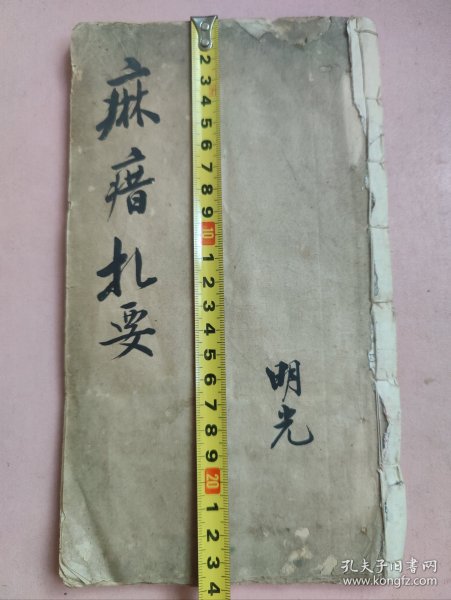 麻瘄扎要
明光
2 3 4 5 6 7 8 9 10 1 2 3 4 5 6 7 8 9 20 1 2 3 4
孔夫子旧书网
www.kongfz.com